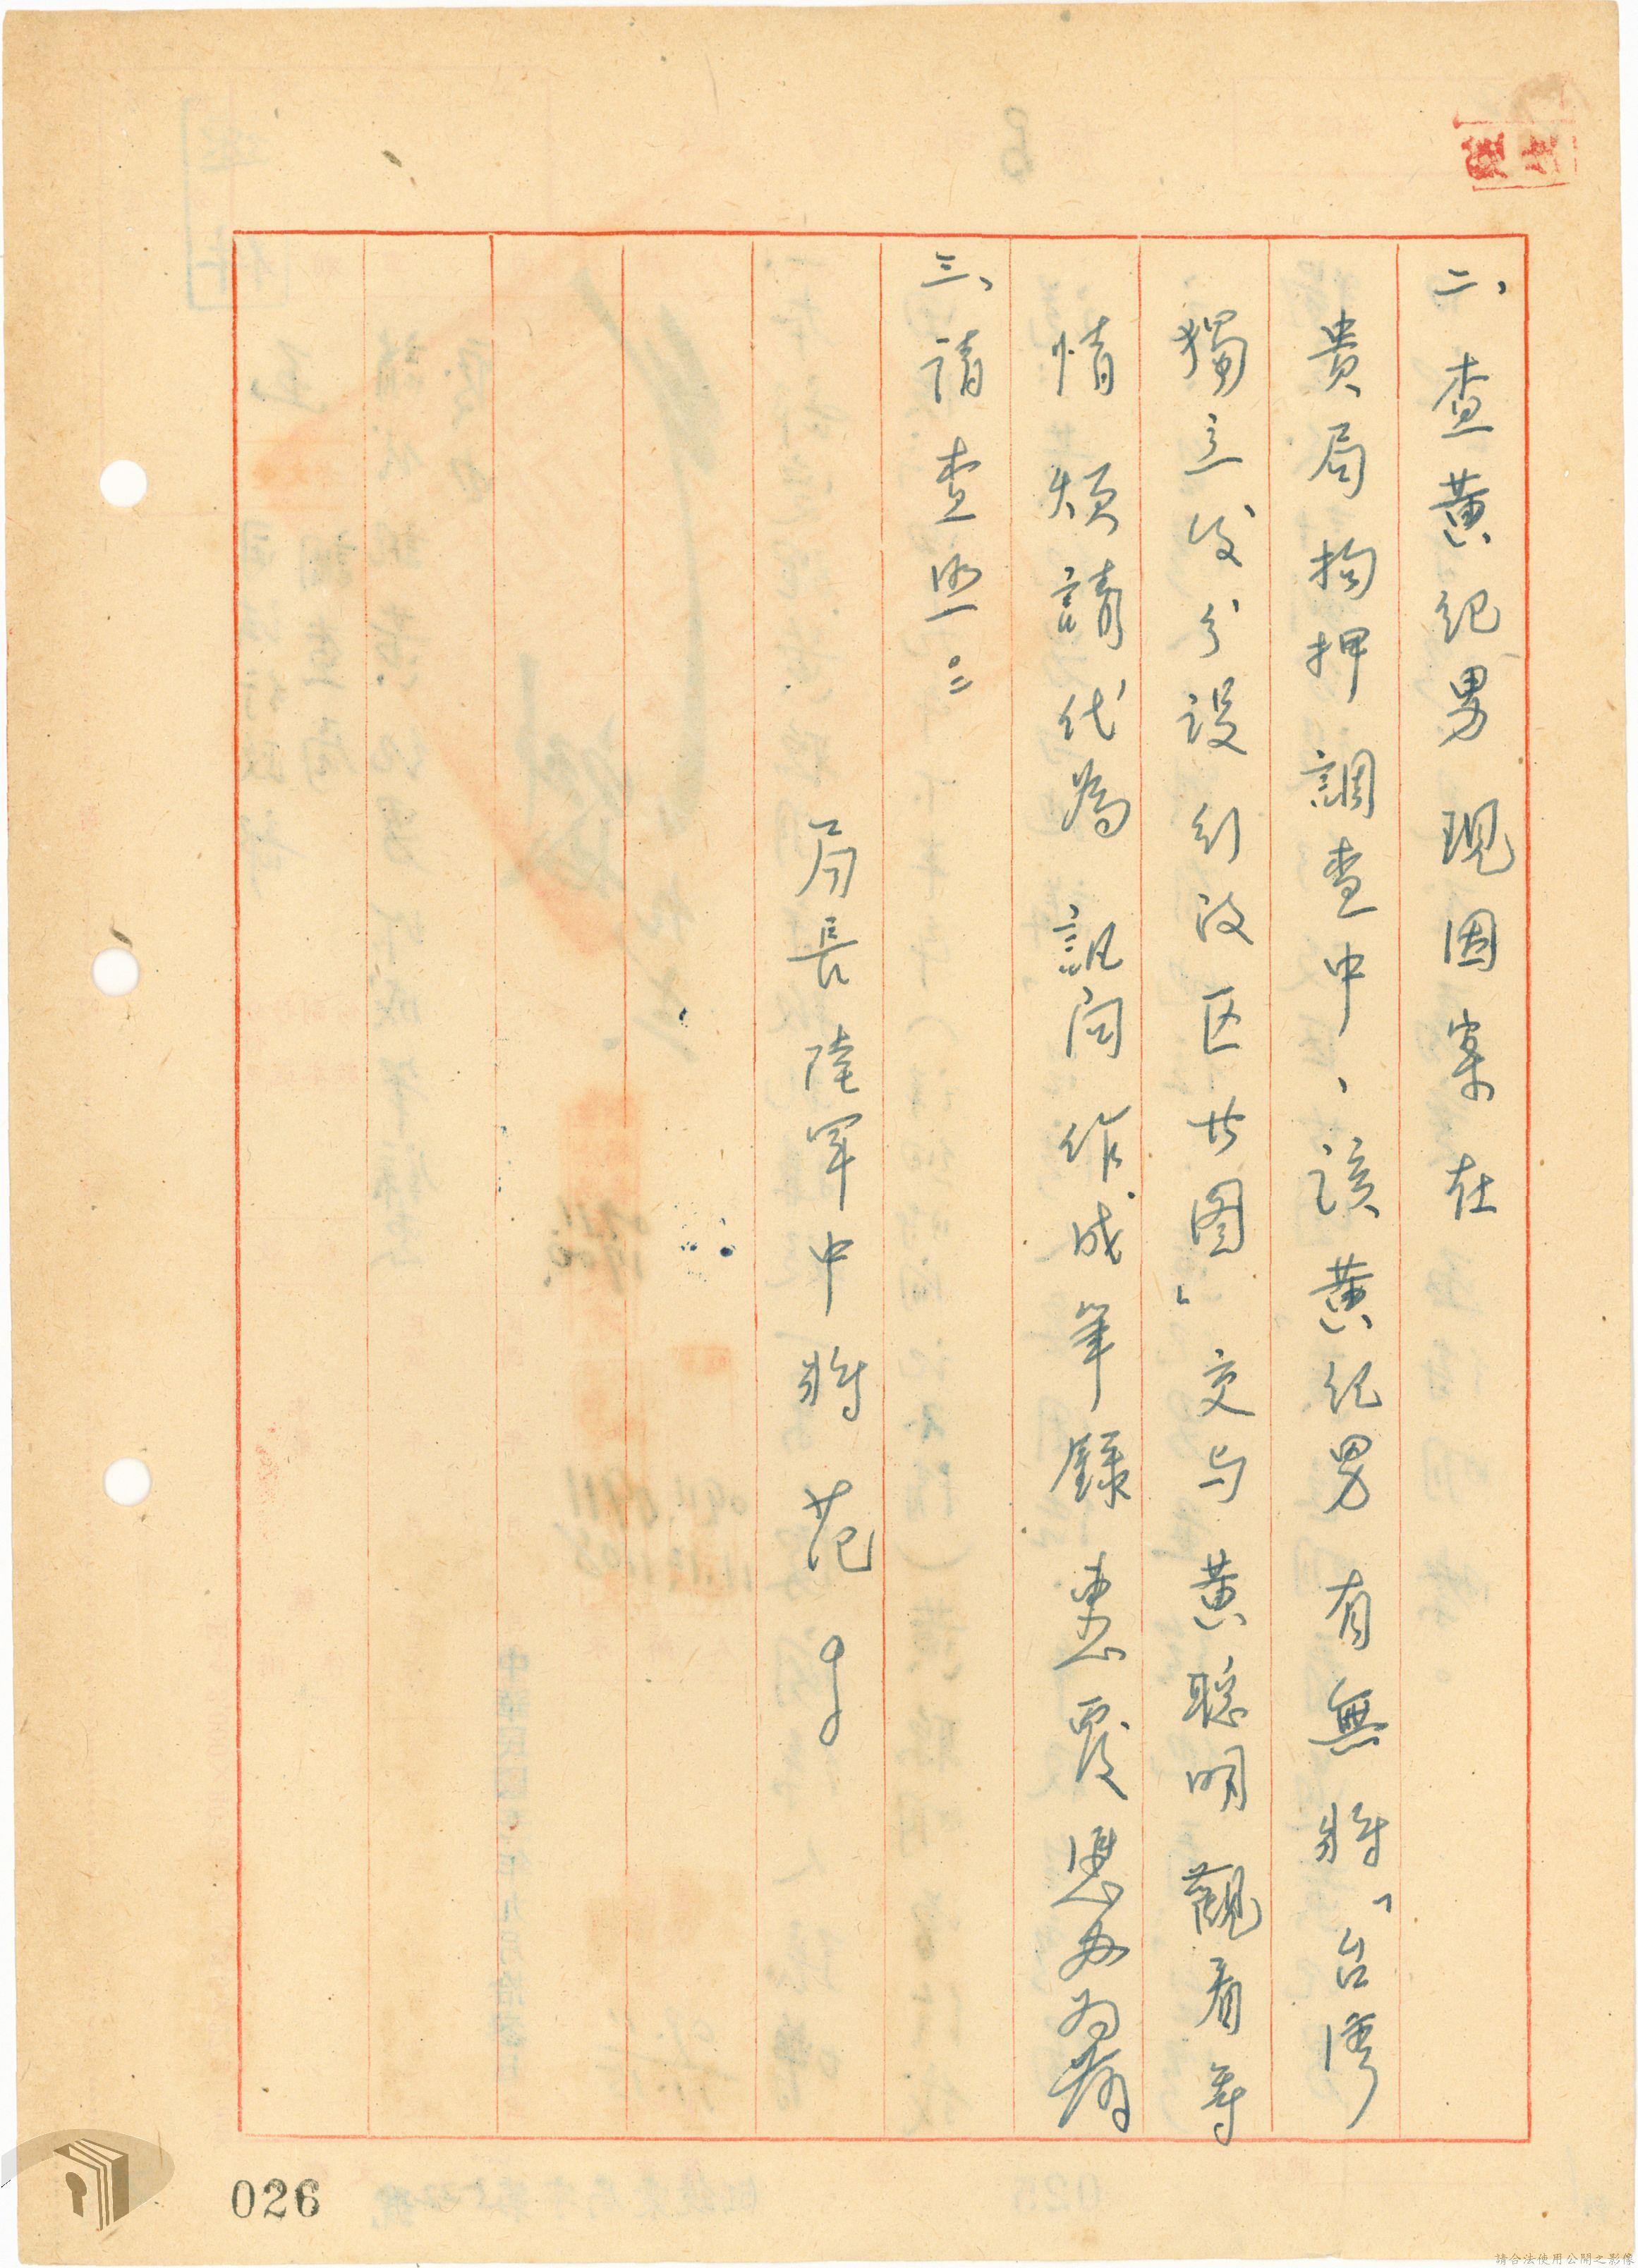 二、查黃紀男現因案在
貴局拘押調查中、該黃紀男有無將「台灣
獨立後分設行政区廿图」交与黃聪明觀看等
情煩請代為訊問作成筆錄惠覆憑办為荷
三、請查照。
局長陸軍中將范
026
請合法使用公開之影像